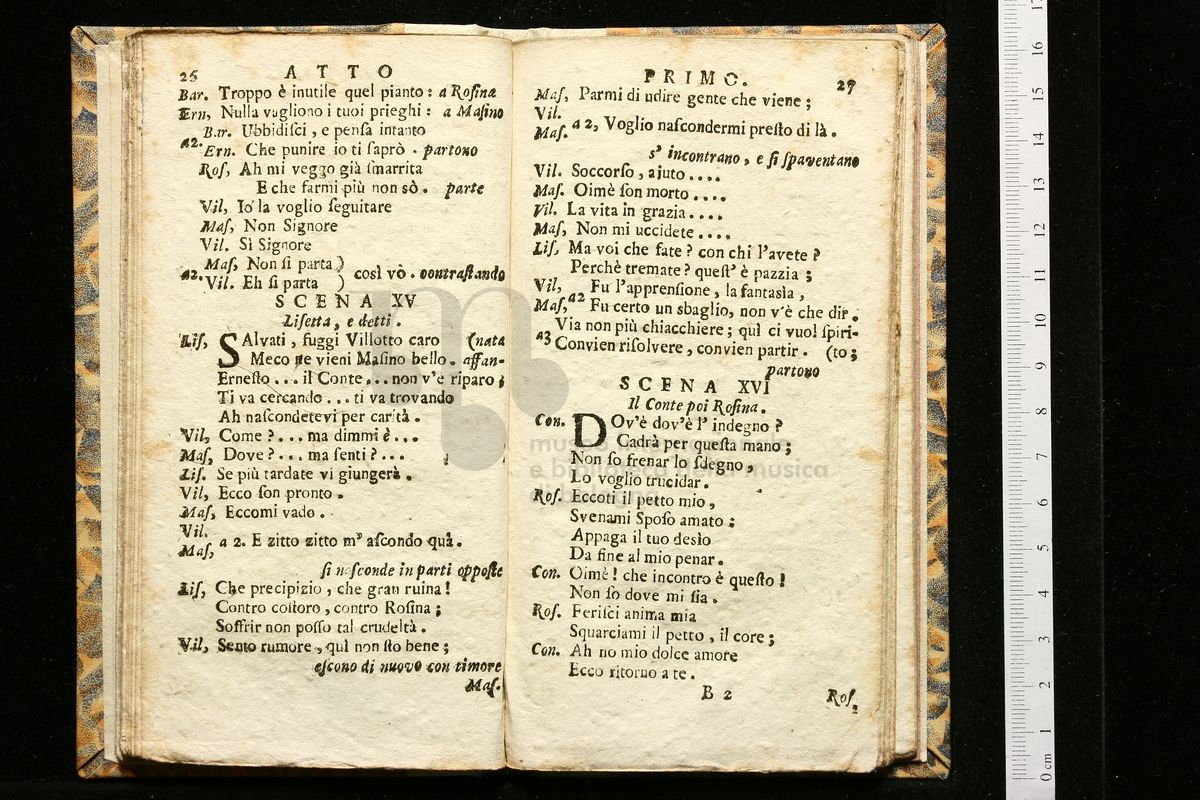 26 ATTO
Bar. Troppo è inutile quel pianto : a Roſina
Ern, Nulla vagliono i tuoi prieghi : a Maſino
Bar. Ubbidiſci , e penſa intanto
a2. Ern. Che punire io ti ſaprò . partono
Roſ, Ah mi veggo già ſmarrita
E che farmi più non sò . parte
Vil, Io la voglio ſeguitare
Maſ, Non Signore
Vil. Sì Signore
Maſ, Non ſi parta )
a2. Vil. Eh ſi parta ) così vò . contraſtando
SCENA XV
Liſetta, e detti .
Liſ, SAlvati , fuggi Villotto caro (nata
Meco ne vieni Maſino bello . affan-
Erneſto ... il Conte ... non v'e riparo ;
Ti va cercando ... ti va trovando
Ah naſcondetevi per carità .
Vil, Come ? ... ma dimmi è ...
Maſ, Dove ? ... ma ſenti ? ...
Liſ. Se più tardate vi giungerà .
Vil, Ecco ſon pronto .
Maſ, Eccomi vado .
Vil.
Maſ, a 2. E zitto zitto m' aſcondo quà .
ſi naſconde in parti oppoſte
Liſ, Che precipizio , che gran ruina !
Contro coſtoro , contro Roſina ;
Soffrir non poſſo tal crudeltà .
Vil, Sento rumore , quì non ſto bene ;
eſcono di nuovo con timore
Maſ.
PRIMO. 27
Maſ, Parmi di udire gente che viene ;
Vil.
Maſ. a 2, Voglio naſcondermi preſto di là .
s' incontrano , e ſi ſpaventano
Vil. Soccorſo , ajuto ....
Maſ. Oimè ſon morto ....
Vil. La vita in grazia ....
Maſ, Non mi uccidete ....
Liſ, Ma voi che fate ? con chi l'avete ?
Perchè tremate ? queſt' è pazzia ;
Vil, Fu l'apprenſione , la fantasìa ,
Maſ, a2 Fu certo un sbaglio, non v'è che dir .
Via non più chiacchiere ; quì ci vuol ſpiri-
a3 Convien riſolvere , convien partir . (to ;
partono
SCENA XVI
Il Conte poi Roſina .
Con. DOv'è dov'è l' indegno ?
Cadrà per queſta mano ;
Non ſo frenar lo ſdegno ,
Lo voglio trucidar .
Roſ. Eccoti il petto mio ,
Svenami Spoſo amato ;
Appaga il tuo desìo
Da fine al mio penar .
Con. Oimè ! che incontro è queſto !
Non ſo dove mi ſia .
Roſ. Feriſci anima mia
Squarciami il petto , il core ;
Con. Ah no mio dolce amore
Ecco ritorno a te .
B 2 Roſ.